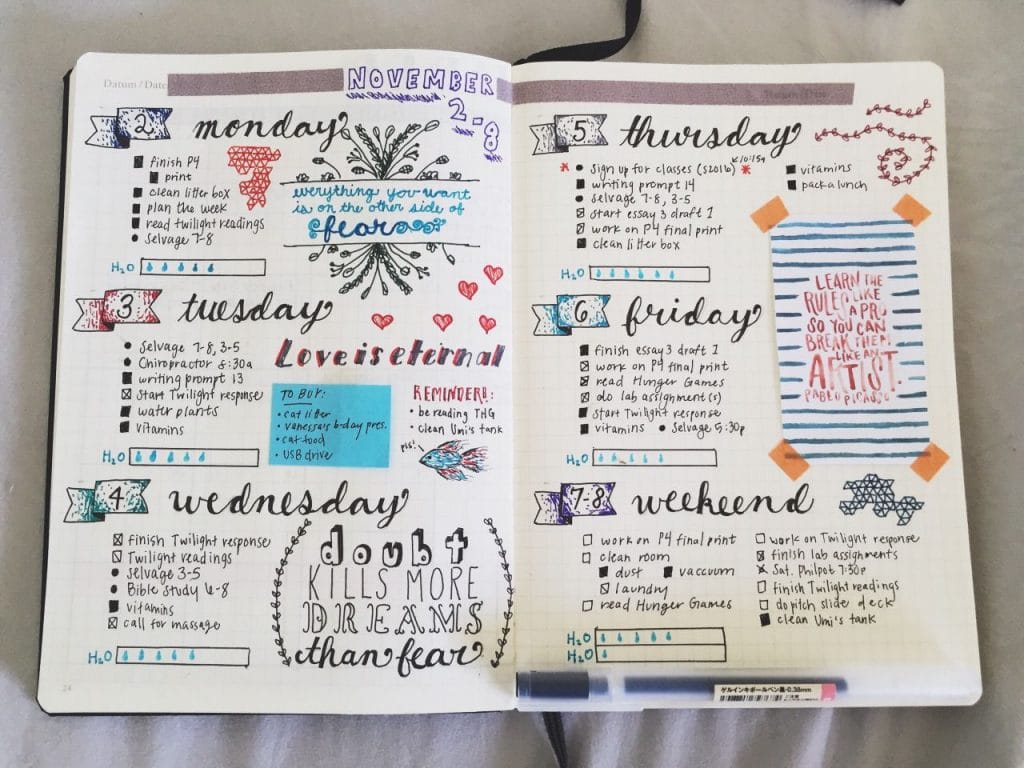 Datum/Date
NOVEMBER
2-8
2 monday
finish P4
print
clean litter box
plan the week
read twilight readings
Selvage 7-8
H2O
everything you want
is on the other side of
fear
3 tuesday
Selvage 7-8, 3-5
Chiropractor 8:30a
writing prompt 13
Start Twilight response
water plants
vitamins
H2O
Love is eternal
TO BUY:
• cat litter
• vanessa's b-day pres.
• cat food
• USB drive
REMINDER!:
• be reading THG
• clean Umi's tank
pls!
4 wednesday
finish Twilight response
Twilight readings
Selvage 3-5
Bible study 6-8
vitamins
call for massage
H2O
doubt
KILLS MORE
DREAMS
than fear
24
5 thursday
10:15a
sign up for classes (S2016)
writing prompt 14
Selvage 7-8, 3-5
Start essay 3 draft 1
work on P4 final print
clean litter box
vitamins
pack a lunch
H2O
LEARN THE
RULES LIKE
A PRO
SO YOU CAN
BREAK THEM
LIKE AN
ARTIST.
PABLO PICASSO
6 friday
finish essay 3 draft 1
work on P4 final print
read Hunger Games
do lab assignment(s)
Start Twilight response
vitamins • Selvage 5:30p
H2O
7-8 weekeend
work on P4 final print
clean room
dust
vaccuum
laundry
read Hunger Games
work on Twilight response
finish lab assignments
Sat. Philpot 7:30p
finish Twilight readings
do pitch slide deck
clean Umi's tank
H2O
H2O
ゲルインキボールペン 黒・0.38mm